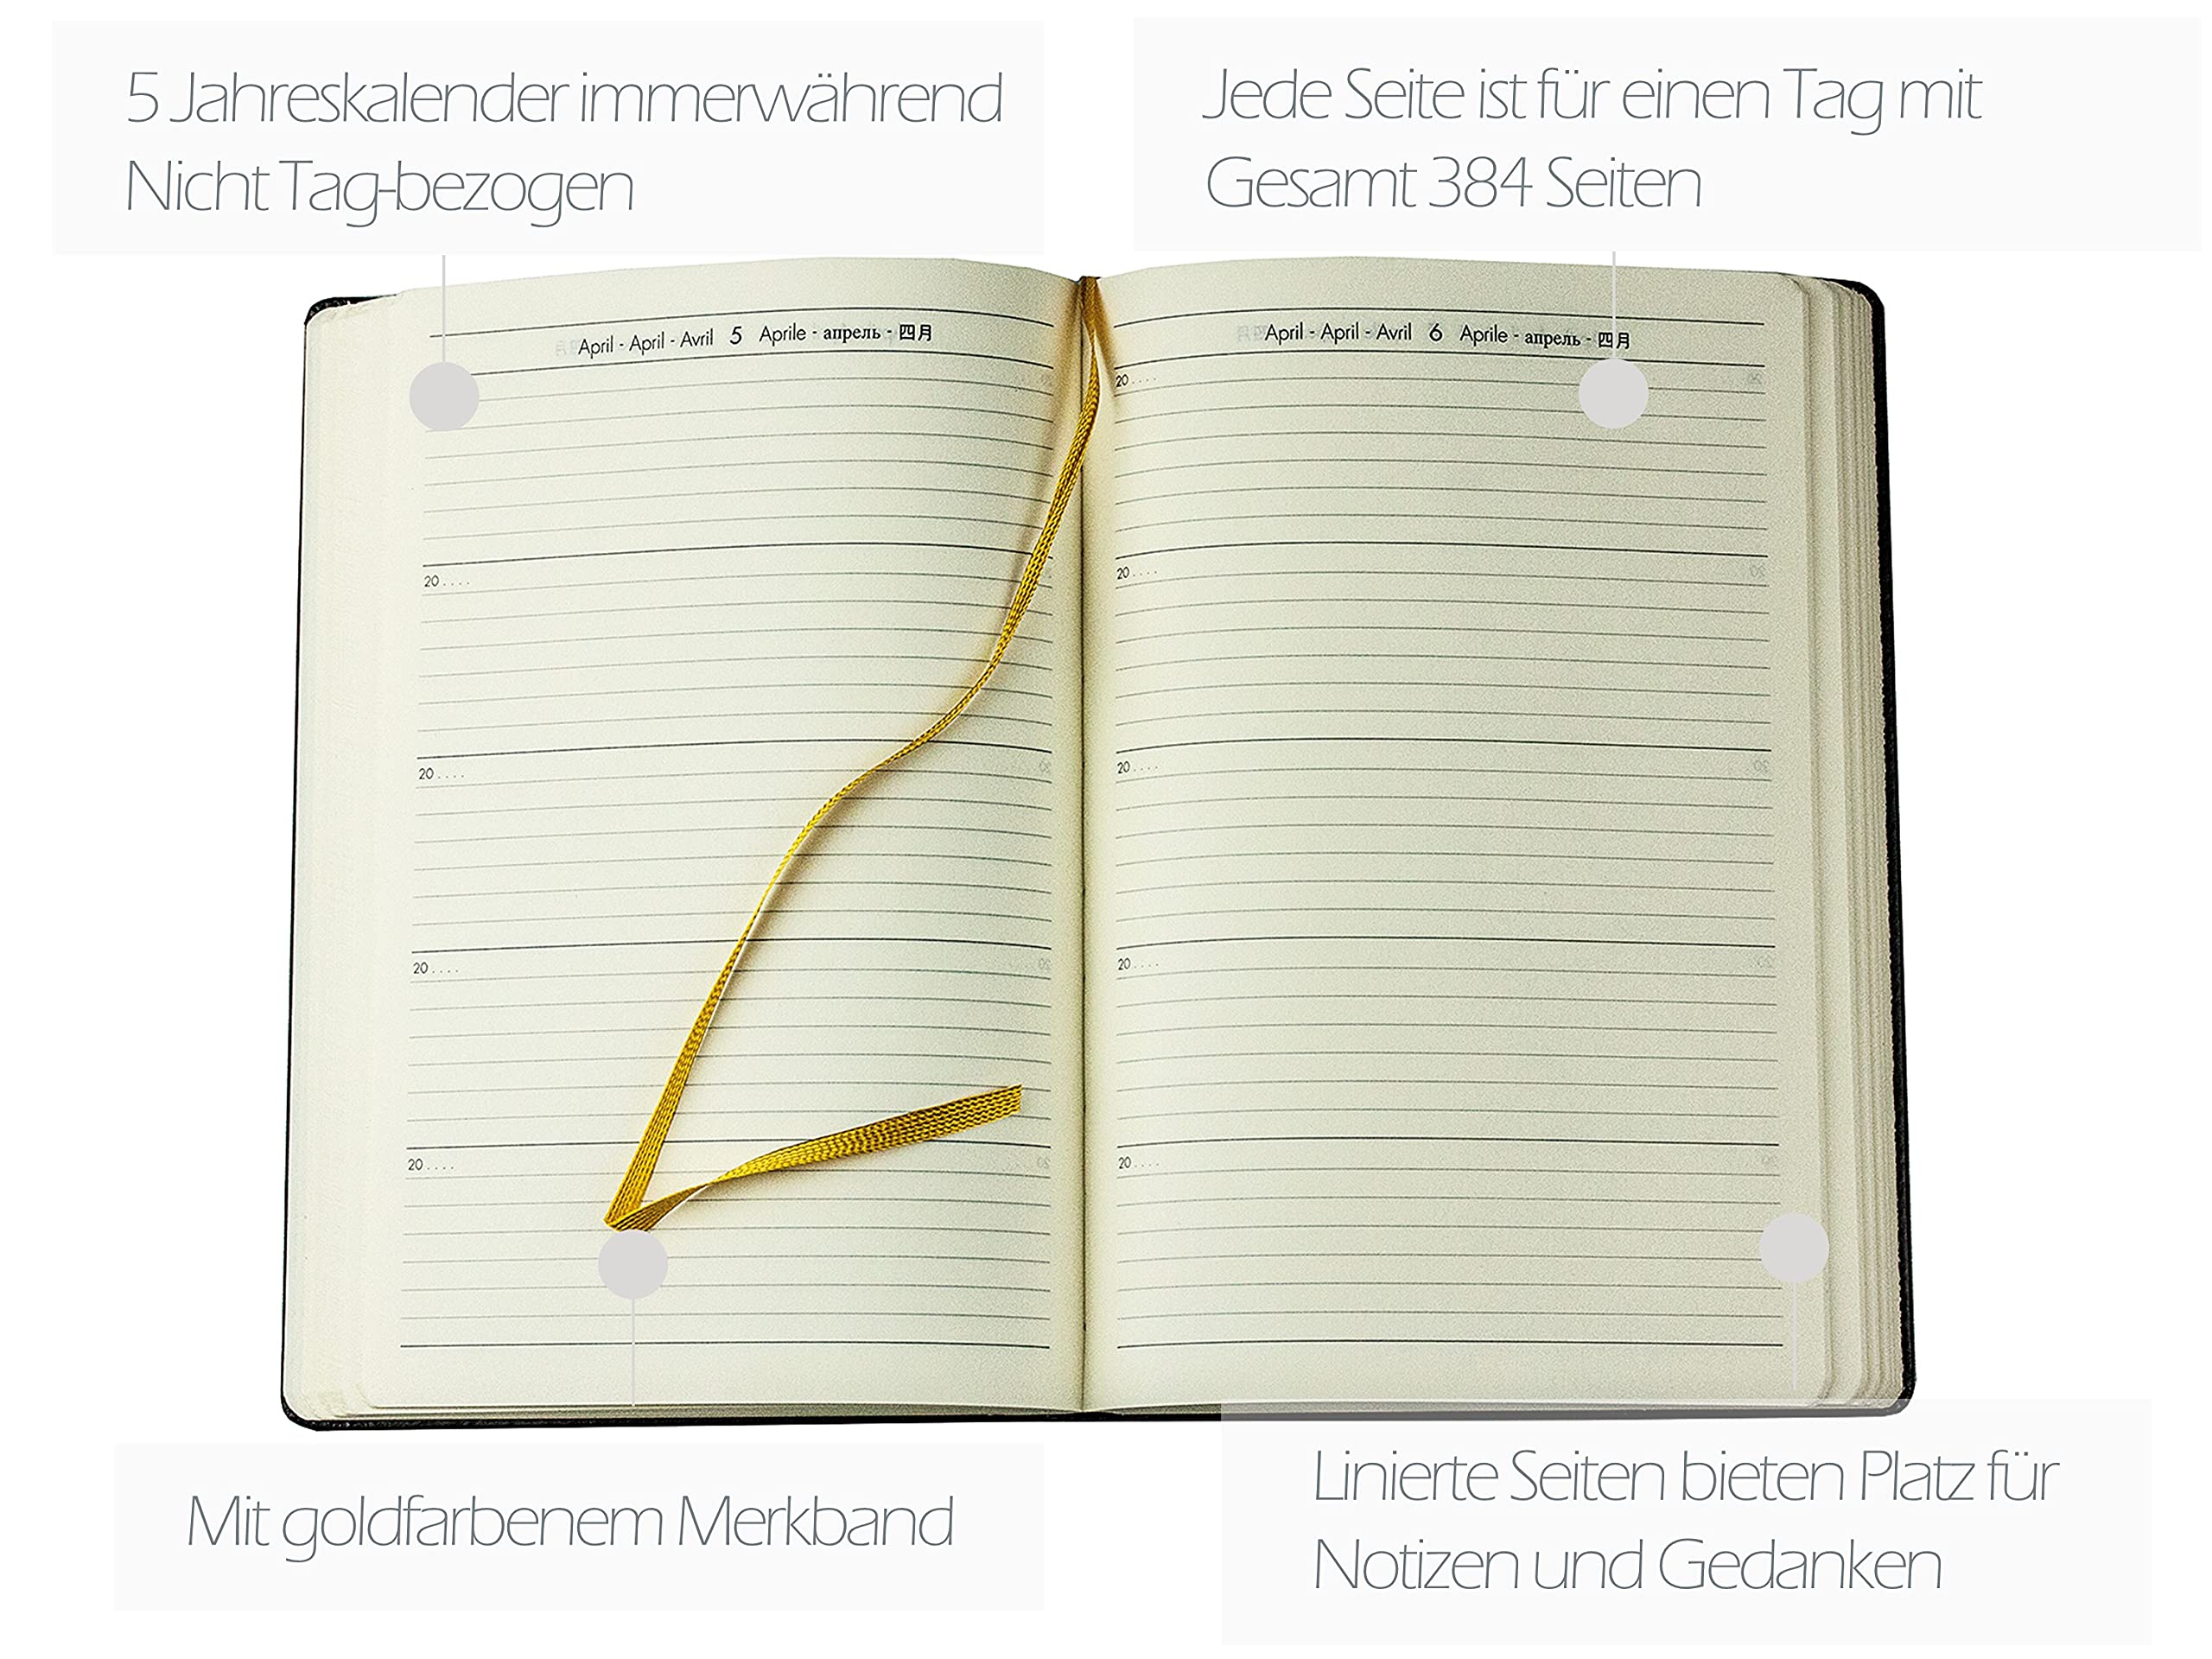 5 Jahreskalender immerwährend
Nicht Tag-bezogen
Jede Seite ist für einen Tag mit
Gesamt 384 Seiten
April - April - Avril 5 Aprile - апрель - 四月
20 . . . .
20 . . . .
20 . . . .
20 . . . .
April - April - Avril 6 Aprile - апрель - 四月
20 . . . .
20 . . . .
20 . . . .
20 . . . .
20 . . . .
Mit goldfarbenem Merkband
Linierte Seiten bieten Platz für
Notizen und Gedanken